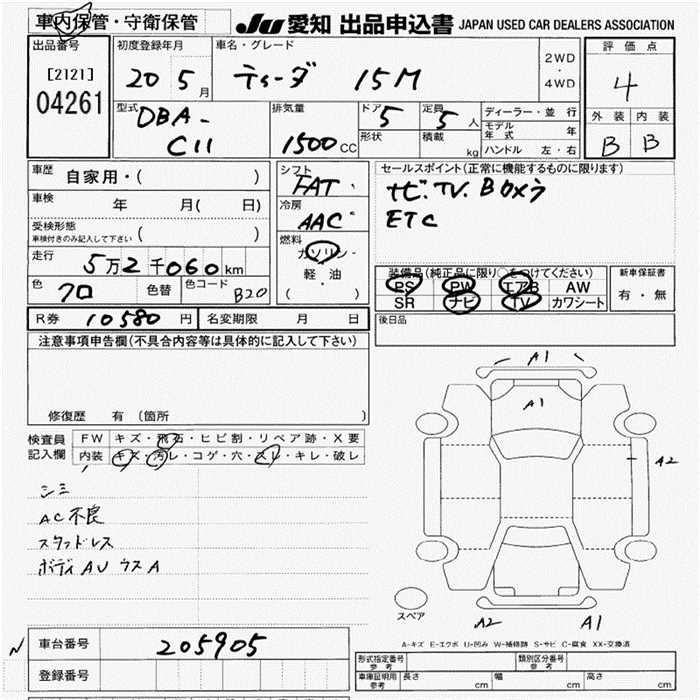 車内保管・守衛保管
JU 愛知 出品申込書 JAPAN USED CAR DEALERS ASSOCIATION
出品番号
[2121]
04261
初度登録年月
20 5月
車名・グレード
ティーダ 15M
2WD
・
4WD
評価点
4
外装 内装
B B
型式
DBA-
C11
排気量
1500CC
ドア 5
形状
定員 5人
積載 kg
ディーラー・並行
モデル年式 年
ハンドル 左・右
車歴 自家用・( )
車検 年 月( 日)
受検形態
車検付きのみ記入して下さい ( )
走行 5万2千060km
色 クロ 色替 色コード B20
シフト
FAT
冷房
AAC
燃料
ガソリン・
軽・油
( )
セールスポイント(正常に機能するものに限ります)
ナビ.TV.Bカメラ
ETC
装備品(純正品に限り○をつけてください)
PS PW エアB AW
SR ナビ TV カワシート
新車保証書
有・無
R券 10580円 名変期限 月 日
後日品
注意事項申告欄(不具合内容等は具体的に記入して下さい)
修復歴 有(箇所 )
検査員記入欄
FW キズ・飛石・ヒビ割・リペア跡・X要
内装 キズ・汚レ・コゲ・穴・スレ・キレ・破レ
シミ
AC不良
スタッドレス
ボディAUウスA
A1
A1
A2
スペア
A2 A1
A-キズ E-エクボ U-凹み W-補修跡 S-サビ C-腐食 XX-交換済
N
車台番号 205905
登録番号
形式指定番号
参考
類別区分番号
参考
車庫証明用
参考
長さ cm 幅 cm 高さ cm